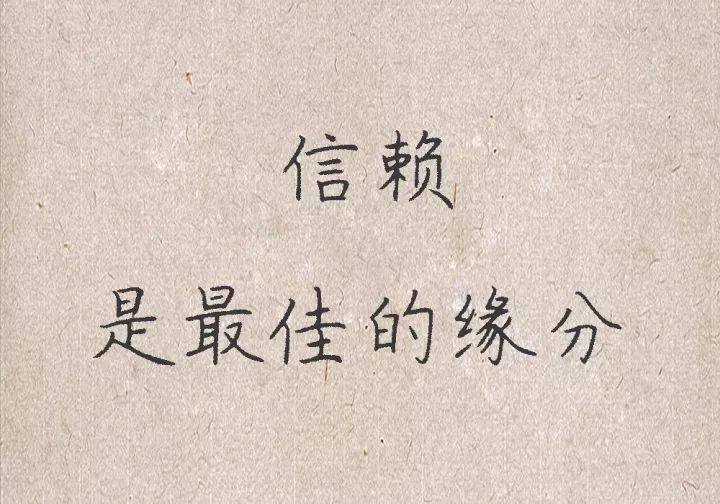 信赖
是最佳的缘分